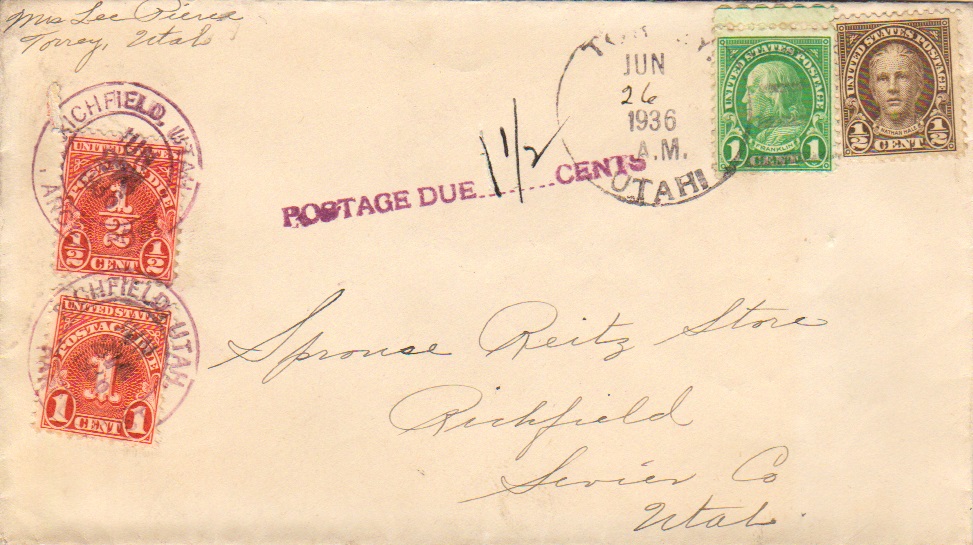 Mrs Lee Pierce
Torrey, Utah
JUN
26
1936
A.M.
UTAH
UNITED STATES POSTAGE
FRANKLIN
1 CENT 1
UNITED STATES POSTAGE
NATHAN HALE
1/2 CENT 1/2
POSTAGE DUE 1 1/2 CENTS
RICHFIELD, UTAH
JUN
UNITED STATES
POSTAGE DUE
1/2
1/2 CENT 1/2
RICHFIELD, UTAH.
UNITED STATES
POSTAGE DUE
1
1 CENT 1
Sprouse Reitz Store
Richfield
Sevier Co
Utah.